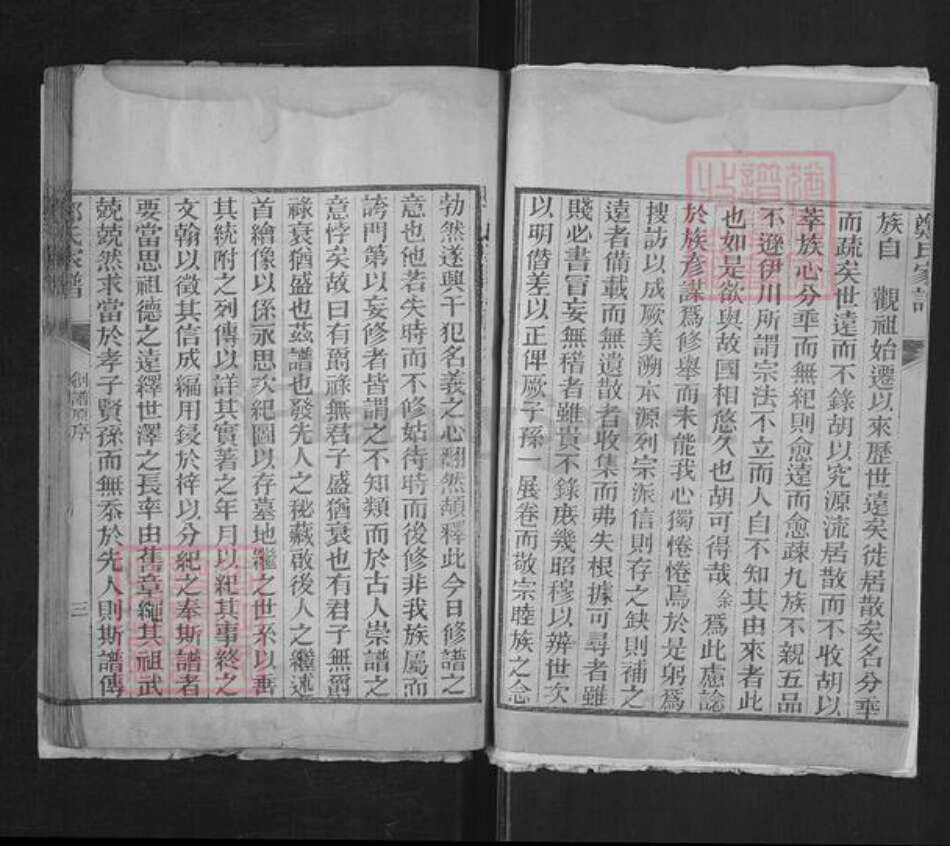 鄭氏家譜
族自 觀祖始遷以來歷世遠矣徙居散矣名分乖
而疏矣世遠而不錄胡以究源流居散而不收胡以
萃族心分乖而無紀則愈遠而愈疎九族不親五品
不遜伊川所謂宗法不立而人自不知其由來者此
也如是欲與故國相悠久也胡可得哉余為此慮諗
於族彥謀為修舉而未能我心獨惓惓焉於是躬為
搜訪以成厥美溯本源列宗派信則存之缺則補之
遠者備載而無遺散者收集而弗失根據可尋者雖
賤必書盲妄無稽者雖貴不錄庶幾昭穆以辨世次
以明僭差以正俾厥子孫一展卷而敬宗睦族之念
勃然遂興干犯名義之心翻然頓釋此今日修譜之
意也他若失時而不修姑待時而後修非我族屬而
誇門第以妄修者皆謂之不知類而於古人崇譜之
意悖矣故曰有爵祿無君子盛猶衰也有君子無爵
祿衰猶盛也茲譜也發先人之秘藏啟後人之繼述
首繪像以係永思次紀圖以存墓地繼之世系以垂
其統附之列傳以詳其實著之年月以紀其事終之
文翰以徵其信成編用鋟於梓以分紀之奉斯譜者
要當思祖德之遠繹世澤之長率由舊章繩其祖武
兢兢然求當於孝子賢孫而無忝於先人則斯譜傳
鄭氏家譜 創譜原序 三